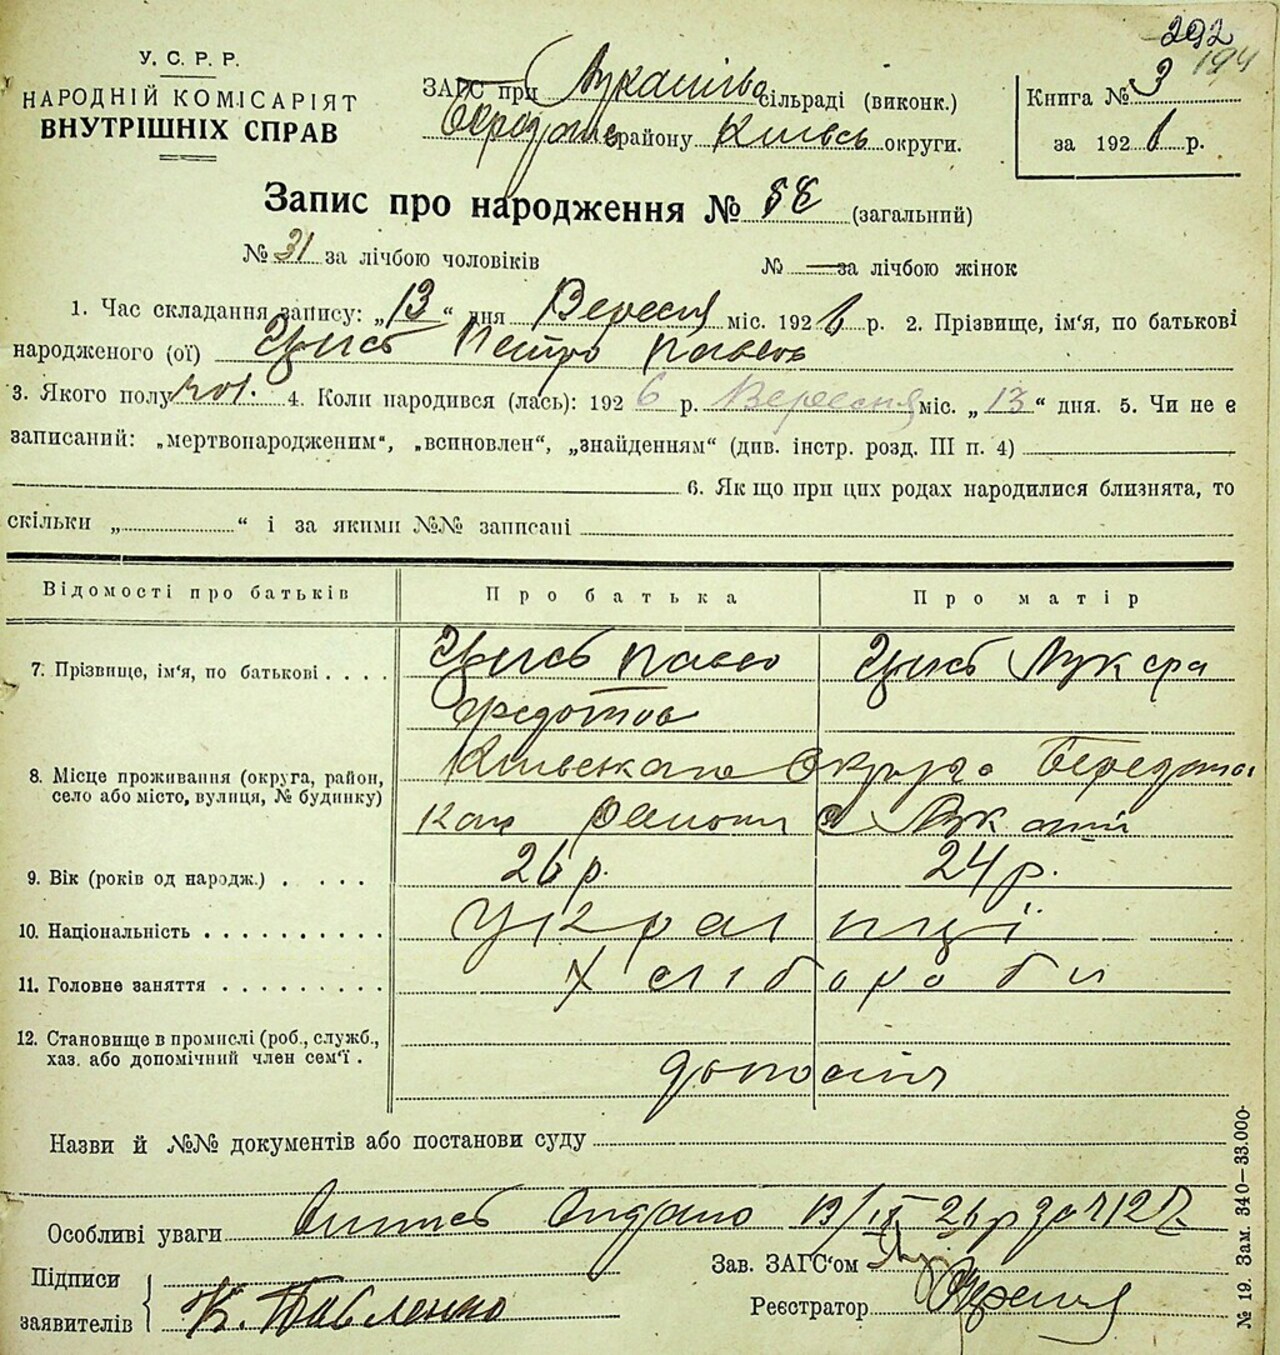 292
194
У. С. Р. Р.
НАРОДНІЙ КОМІСАРІЯТ
ВНУТРІШНІХ СПРАВ
ЗАГС при сільраді (виконк.)
району Київсь округи.
Книга № 3
за 1926 р.
Запис про народження № 58 (загальний)
№ 31 за лічбою чоловіків
№ — за лічбою жінок
1. Час складання запису: „13“ дня Вересня міс. 1926 р. 2. Прізвище, ім'я, по батькові
народженого (ої) Петро Павлов
3. Якого полу чол. 4. Коли народився (лась): 1926 р. Вересня міс. „13“ дня. 5. Чи не є
записаний: „мертвонародженим“, „всиновлен“, „знайденням“ (див. інстр. розд. III п. 4)
6. Як що при цих родах народилися близнята, то
скільки „ “ і за якими №№ записані
Відомості про батьків
Про батька
Про матір
7. Прізвище, ім'я, по батькові . . . .
Павло
Федотов
8. Місце проживання (округа, район,
село або місто, вулиця, № будинку)
9. Вік (років од народж.) . . . .
26 р.
24 р.
10. Національність . . . . . . . . . .
Українці
11. Головне заняття . . . . . . . . .
Хлібороби
12. Становище в промислі (роб., служб.,
хаз. або допомічний член сем'ї .
Назви й №№ документів або постанови суду
Особливі уваги
Підписи
заявителів
К. Павленко
Зав. ЗАГС'ом
Реєстратор
№ 19. Зам. 340—33.000.